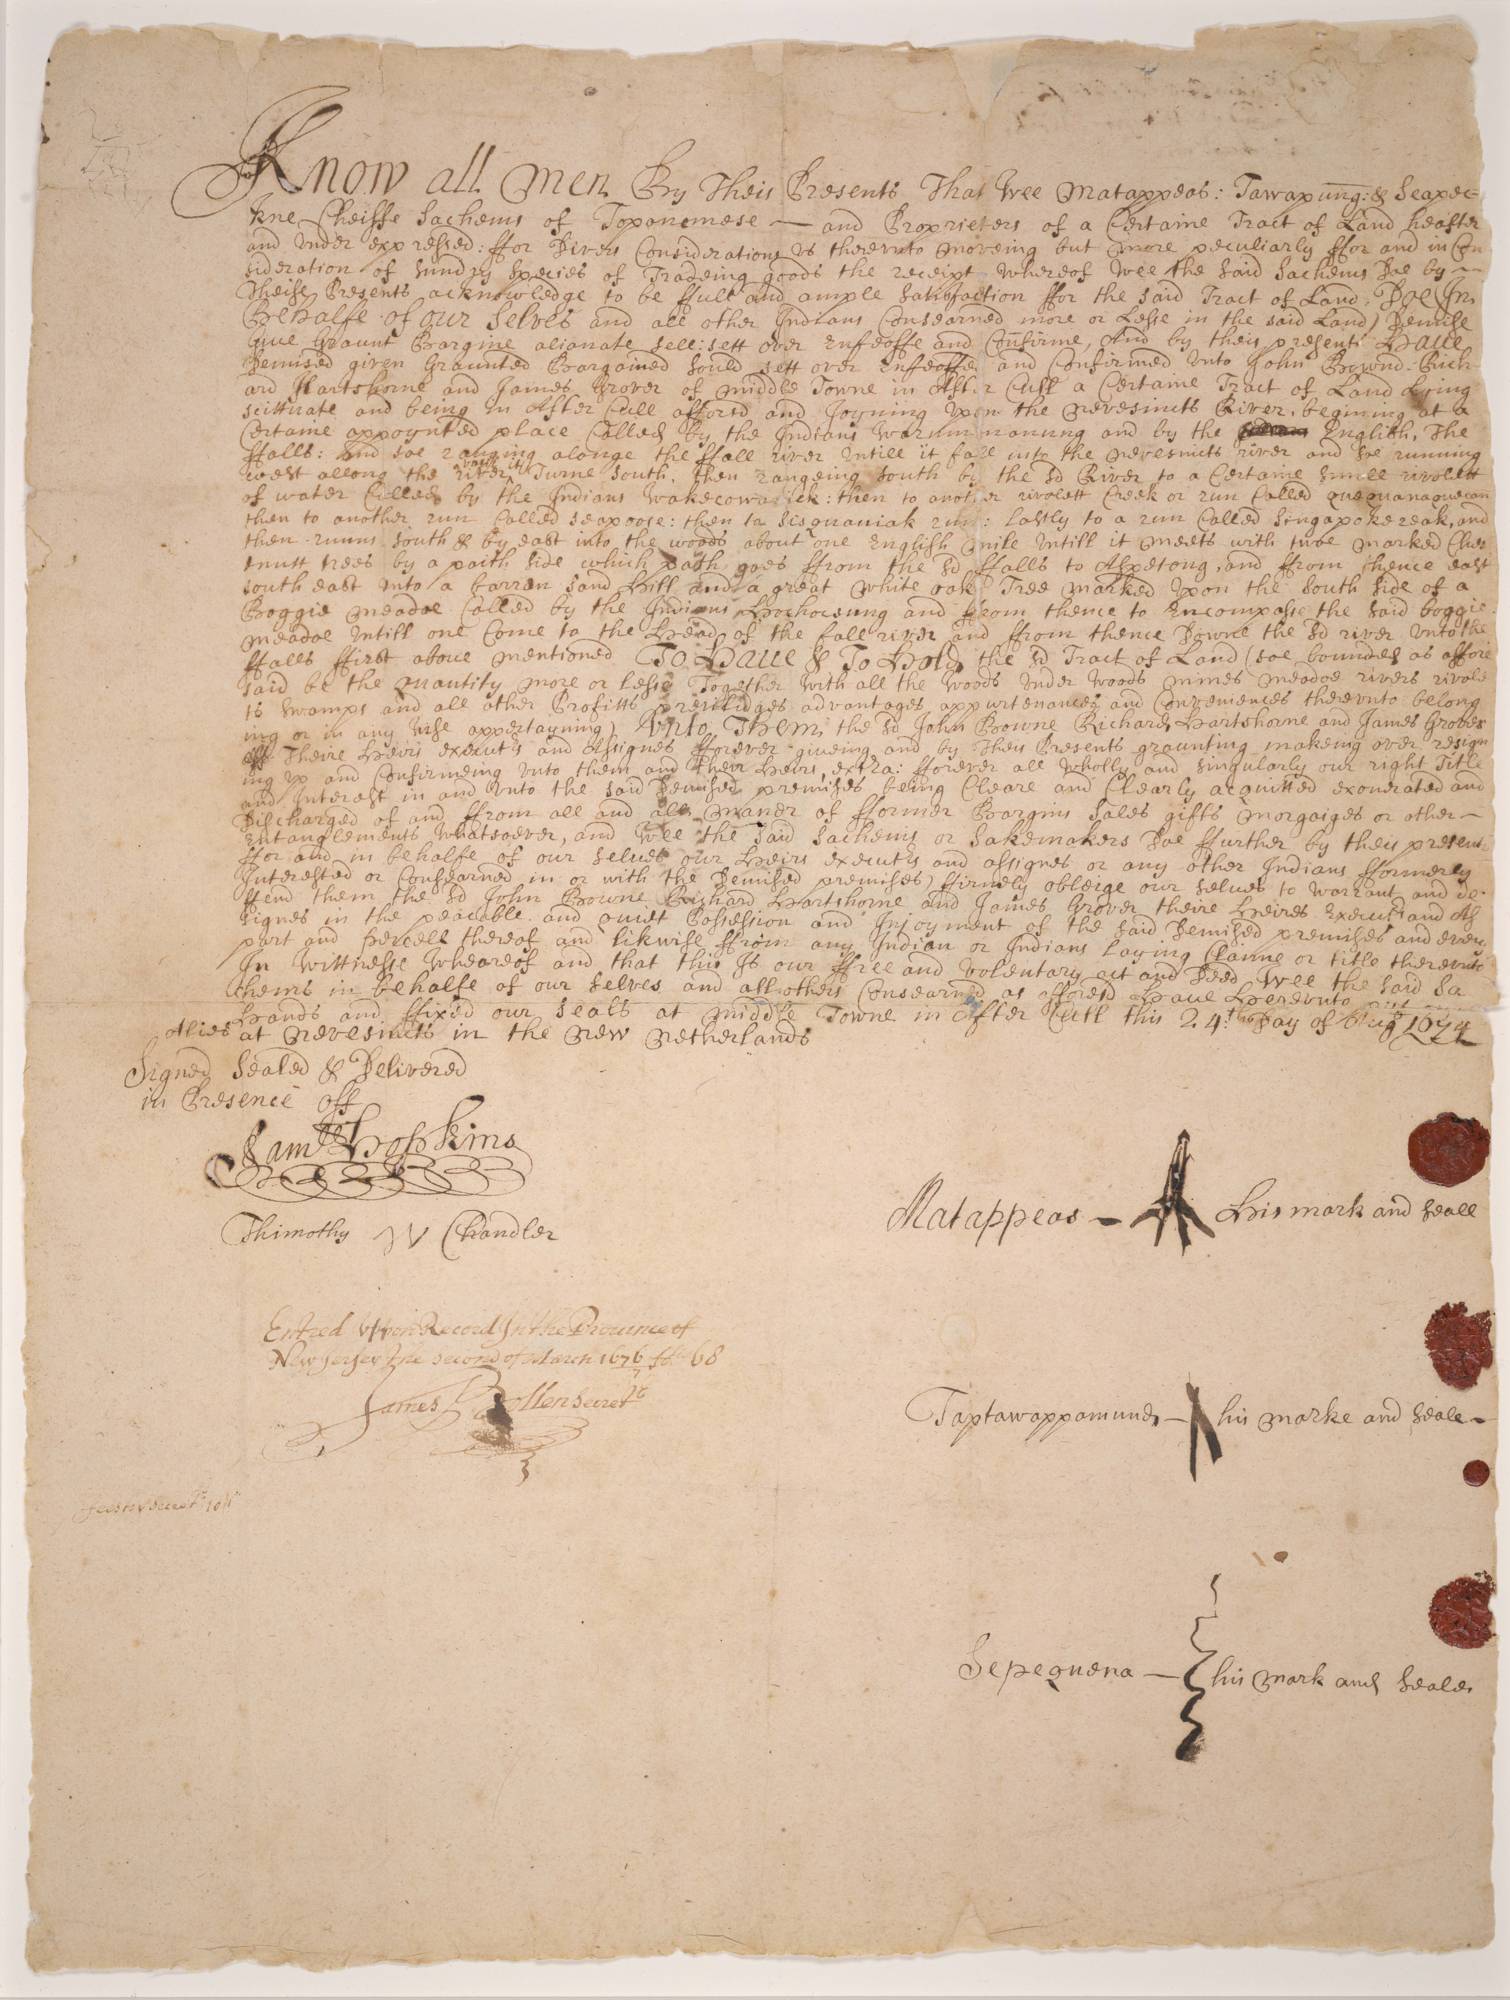 Know all Men By Theis Presents That Wee Matappeas: Tawapung: & Seapec=
kne Cheiffe Sachems of Toponemese — and Proprieters of a Certaine Tract of Land heafter
and under expressed: ffor Divers Considerations us therevnto moveing but more peculiarly ffor and in Con
sideration of sundry species of Tradeing goods the receipt whereof Wee the said Sachems Doe by —
Theise Presents acknowledge to be ffull and ample satisfaction ffor the said Tract of Land, Doe (In
Behalfe of our Selves and all other Indians Consearned more or Lesse in the said Land) Demise
Giue Graunt Bargine alianate sell: sett over Enfeoffe and Confirme, And by theis presents Haue
Demised given Graunted Bargained sould sett over enfeoffed and Confirmed vnto John Bownd Rich
ard Hartshorne and James Grover of Middle Towne in After Cull a Certaine Tract of Land Lying
scittuate and being in After Cull afforsd and Joyning Vpon the Nevesincts River, begining at a
Certaine appoynted place Called by the Indians Warummanung and by the English, The
ffalls: And soe ranging alonge the ffall river Vntill it fall into the nevesincts river and soe running
west allong the river Vntill it Turne South, then rangeing south by the sd River to a Certaine Smale rivolett
of water Called by the Indians Wakecowasick: then to another rivolett Creek or run Called quequanaquecon
then to another run Called seapoose: then to sisquaniak run: Lastly to a run Called Singapokezeak, and
then runns south & by east into the woods about one English Mile Vntill it meets with twoe marked Ches
tnutt trees by a path side which path goes ffrom the sd ffalls to Aspetong, and ffrom thence east
south east Vnto a barran sand Hill and a great white oak Tree marked Vpon the south side of a
Boggie Meadoe Called by the Indians Hochocsung and ffrom thence to Encompasse the said boggie
meadoe Vntill one Come to the Head of the fall river and ffrom thence Downe the sd river Vnto the
ffalls ffirst aboue mentioned To Haue & To Hold, the sd Tract of Land (soe bounded as affore
said be the quantity more or lesse Together with all the Woods Vnder Woods mines meadoe rivers rivole
ts swamps and all other Profitts previlidges advantages appurtenances and Conveniences therevnto belong
ing or in any wise appertayning) Vnto Them, the sd John Bowne Richard Hartshorne and James Grover
Theire Heirs execut:rs and Assignes fforever giueing and by Theis Presents graunting makeing over resign
ing Vp and Confirmeing Vnto them and Their Heirs, extra: fforever all Wholly and singularly our right Title
and Interest in and Vnto the said Demised premises being Cleare and Clearly acquitted exonerated and
Discharged of and ffrom all and all Maner of fformer Bargins Sales gifts Morgaiges or other —
Entanglements Whatsoever, and Wee the said Sachems or Sakemakers Doe ffurther by theis presents
ffor and in behalfe of our selues our Heirs execut:rs and assignes or any other Indians fformerly
Interested or Consearned in or with the Demised premises) ffirmely obleige our selues to Warrant and De
ffend them the sd John Bowne Richard Hartshorne and James Grover theire Heires Execut:rs and As
signes in the peacable and quiet Possession and Injoyment of the said Demised premises and every
part and percell thereof and likwise ffrom any Indian or Indians laying Claime or title therevnto
In Wittnesse Wheareof and that this Is our ffree and Volentary act and Deed Wee the said Sa
chems in behalfe of our selves and all others Consearned as afforesd Haue Herevnto
Hands and ffixed our seals at Middle Towne in After Cull this 24th Day of 1674
Alies at Nevesincts in the New Netherlands
Signed Sealed & Delivered
in Presence off
Samll Hopkins
Thimothy Chandler
Matappeas — His mark and seall
Entred Vpon Record In the Province of
New Jersey the second of March 1676 ffo: 68
James Bollen Secret
Taptawappamund — his marke and seale —
Sepequena — his mark and seale